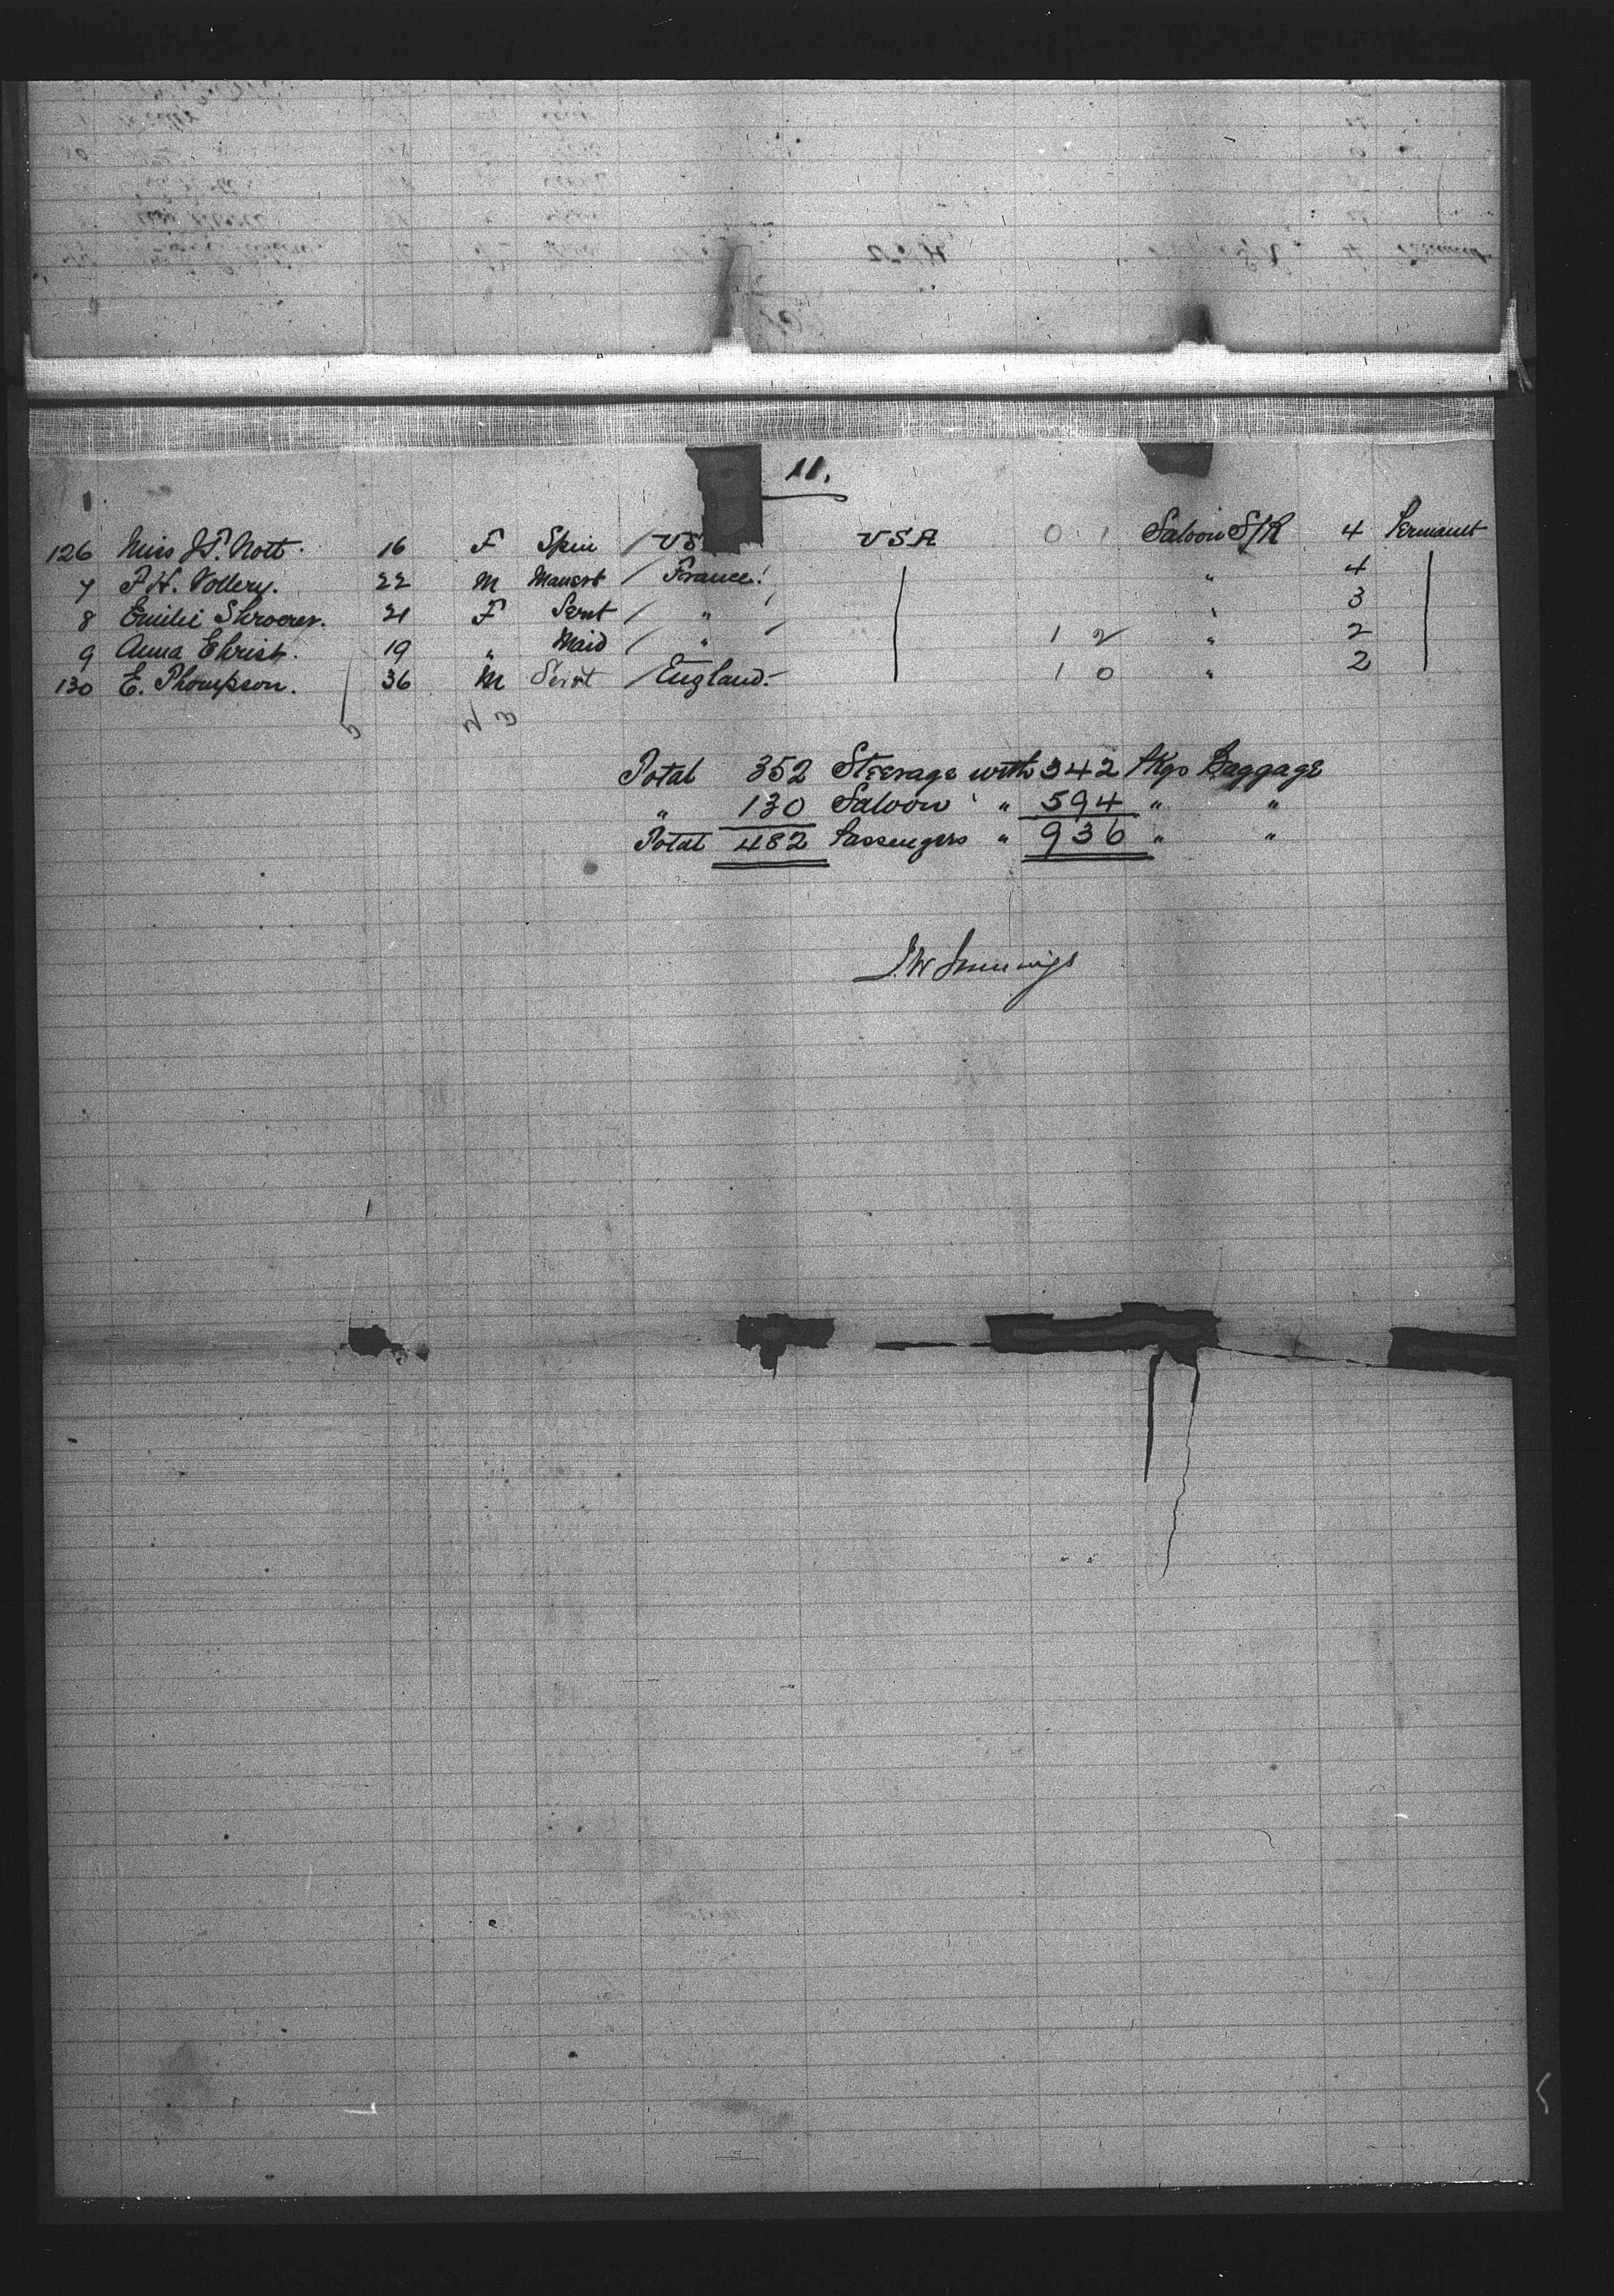 11.
126 Miss J.T. Nott. 16 F Spin / US USA 0 1 Saloon S/R 4 Permanent
7 F.H. Vollery. 22 M / France. " 4
8 Emilie Shroerer. 21 F Servt / " " 3
9 Anna Ehrish. 19 " Maid / " 1 2 " 2
130 E. Thompson. 36 M Servt / England. 1 0 " 2
5 2 3
Total 352 Steerage with 342 Pkgs Baggage
" 130 Saloon " 594 " "
Total 482 Passengers " 936 " "
J.W. Jennings